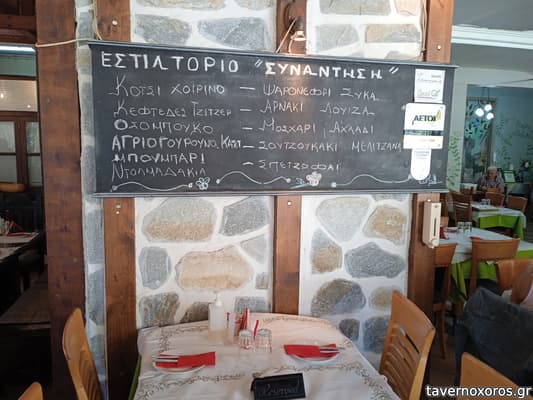 ΕΣΤΙΑΤΟΡΙΟ "ΣΥΝΑΝΤΗΣΗ"
ΚΟΤΣΙ ΧΟΙΡΙΝΟ — ΨΑΡΟΝΕΦΡΙ ΣΥΚΑ
ΚΕΦΤΕΔΕΣ ΤΖΙΤΖΕΡ — ΑΡΝΑΚΙ ΛΟΥΙΖΑ
ΟΣΟΜΠΟΥΚΟ — ΜΟΣΧΑΡΙ ΑΧΛΑΔΙ
ΑΓΡΙΟΓΟΥΡΟΥΝΟ ΚΑΠ — ΣΟΥΤΖΟΥΚΑΚΙ ΜΕΛΙΤΖΑΝΑ
ΜΠΟΥΜΠΑΡΙ — ΣΠΕΤΖΟΦΑΙ
ΝΤΟΛΜΑΔΑΚΙΑ
ΑΕΤΟΙ
tavernoxoros.gr